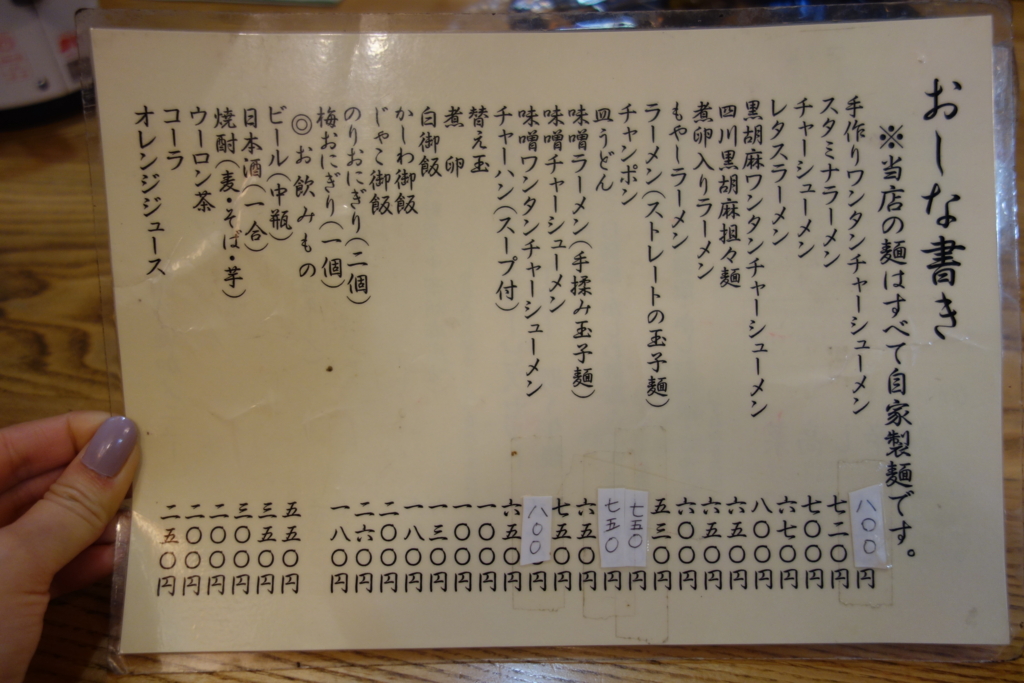 おしな書き
※当店の麺はすべて自家製麺です。
手作りワンタンチャーシューメン 八〇〇円
スタミナラーメン 七二〇円
チャーシューメン 七〇〇円
レタスラーメン 六七〇円
黒胡麻ワンタンチャーシューメン 八〇〇円
四川黒胡麻担々麺 六五〇円
煮卵入りラーメン 六五〇円
もやしラーメン 六〇〇円
ラーメン(ストレートの玉子麺) 五三〇円
チャンポン 七五〇円
皿うどん 七五〇円
味噌ラーメン(手揉み玉子麺) 六五〇円
味噌チャーシューメン 七五〇円
味噌ワンタンチャーシューメン 八〇〇円
チャーハン(スープ付) 六五〇円
替え玉 一〇〇円
煮卵 一〇〇円
白御飯 一三〇円
かしわ御飯 一八〇円
じゃこ御飯 二〇〇円
のりおにぎり(二個) 二六〇円
梅おにぎり(一個) 一八〇円
◎お飲みもの
ビール(中瓶) 五五〇円
日本酒(一合) 三五〇円
焼酎(麦・そば・芋) 三〇〇円
ウーロン茶 二〇〇円
コーラ 二〇〇円
オレンジジュース 二五〇円